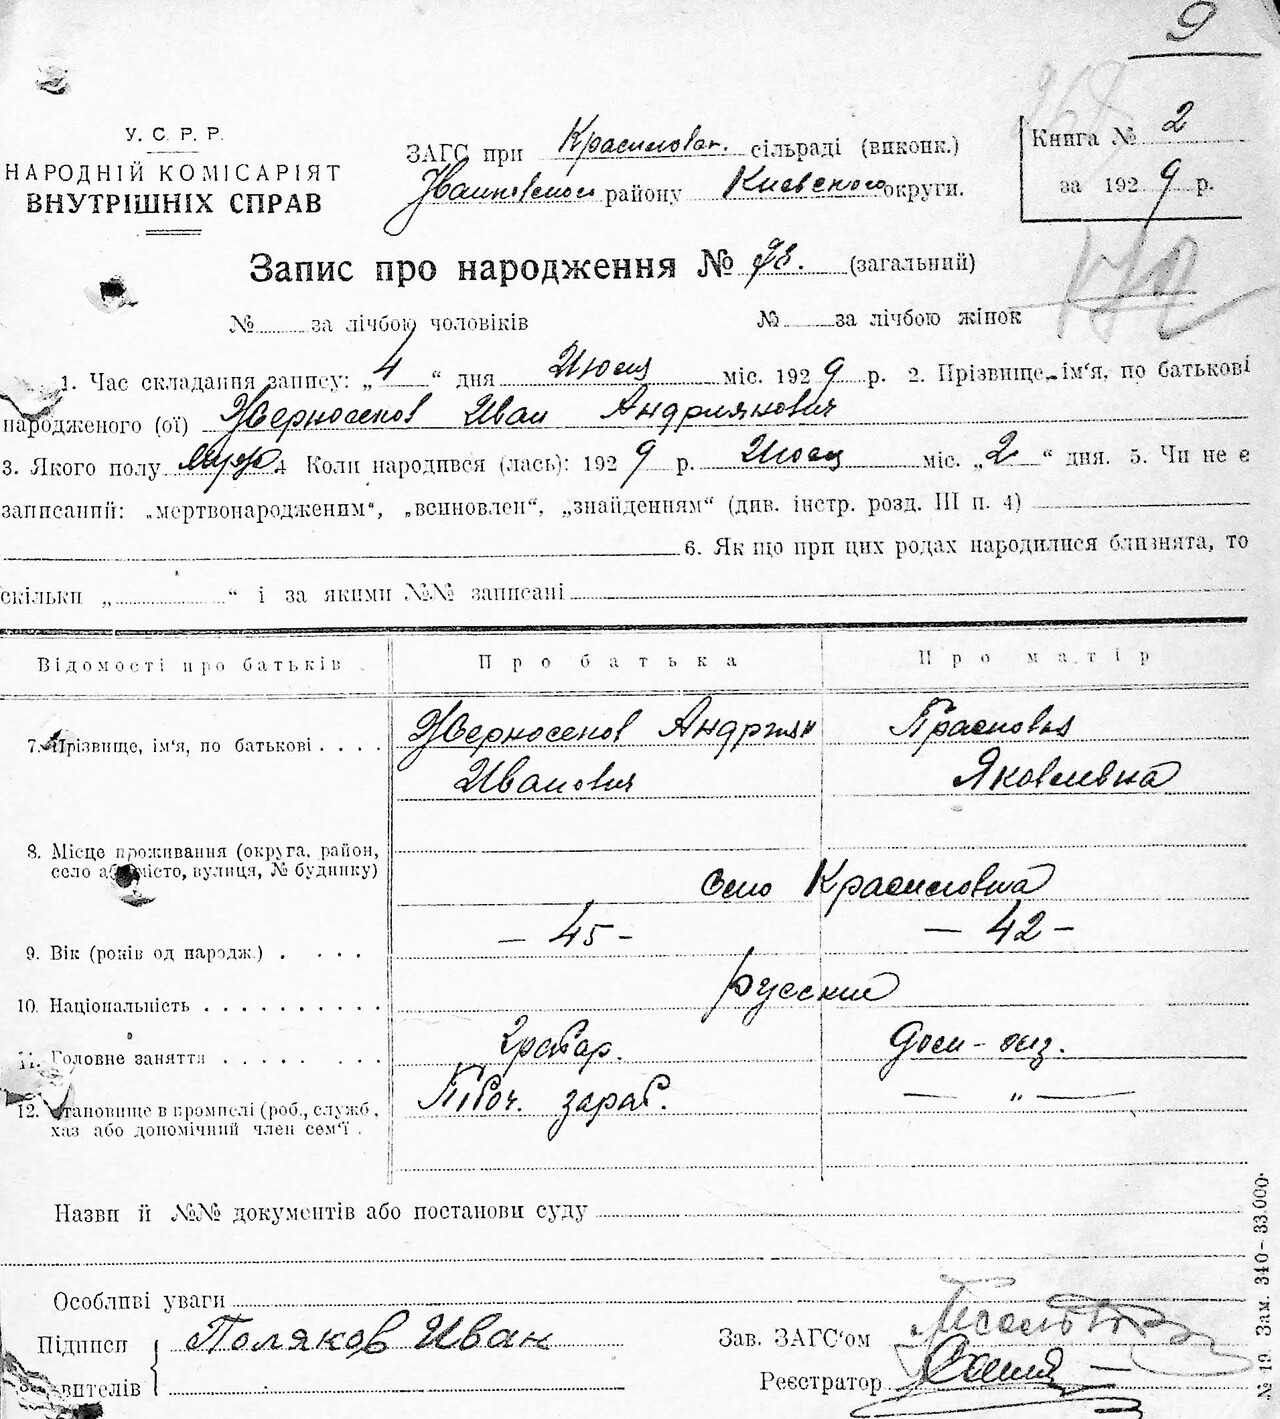 9
У. С. Р. Р.
НАРОДНІЙ КОМІСАРІЯТ
ВНУТРІШНІХ СПРАВ
ЗАГС при Красиловск. сільраді (виконк.)
району Киевского округи.
Книга № 2
за 1929 р.
Запис про народження № (загальний)
№ за лічбою чоловіків № за лічбою жінок
1. Час складання запису: „4“ дня Июля міс. 1929 р. 2. Прізвище, ім‘я, по батькові
народженого (ої) Жерносенов Иван Андриянович
3. Якого полу муж. 4 Коли народився (лась): 1929 р. Июля міс. „2“ дня. 5. Чи не є
записаний: „мертвонародженим“, „всиновлен“, „знайденням“ (див. інстр. розд. III п. 4)
6. Як що при цих родах народилися близнята, то
скільки „ “ і за якими №№ записані
Відомості про батьків Про батька Про матір
7. Прізвище, ім‘я, по батькові Жерносенов Андриян Прасковья
Иванович Яковлевна
8. Місце проживання (округа, район,
село або місто, вулиця, № будинку) село Красиловка
9. Вік (років од народж.) — 45 — — 42 —
10. Національність русские
11. Головне заняття Хлебар. Дом-хоз.
12. Становище в промислі (роб., служб.,
хаз або допомічний член сем‘ї зараб. — „ —
Назви й №№ документів або постанови суду
Особливі уваги
Підписи Поляков Иван Зав. ЗАГС‘ом
Реєстратор
№ 19. Зам. 340–33.000.